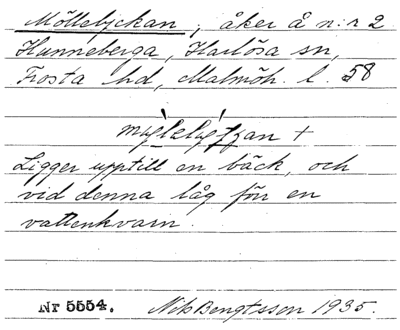 Mölleljckan, åker å n:r 2
Hunneberga, Harlösa sn,
Frosta hd, Malmöh. l. 58
Ligger upptill en bäck, och
vid denna låg förr en
vattenkvarn.
Nr 5554. Nils Bengtsson 1935.